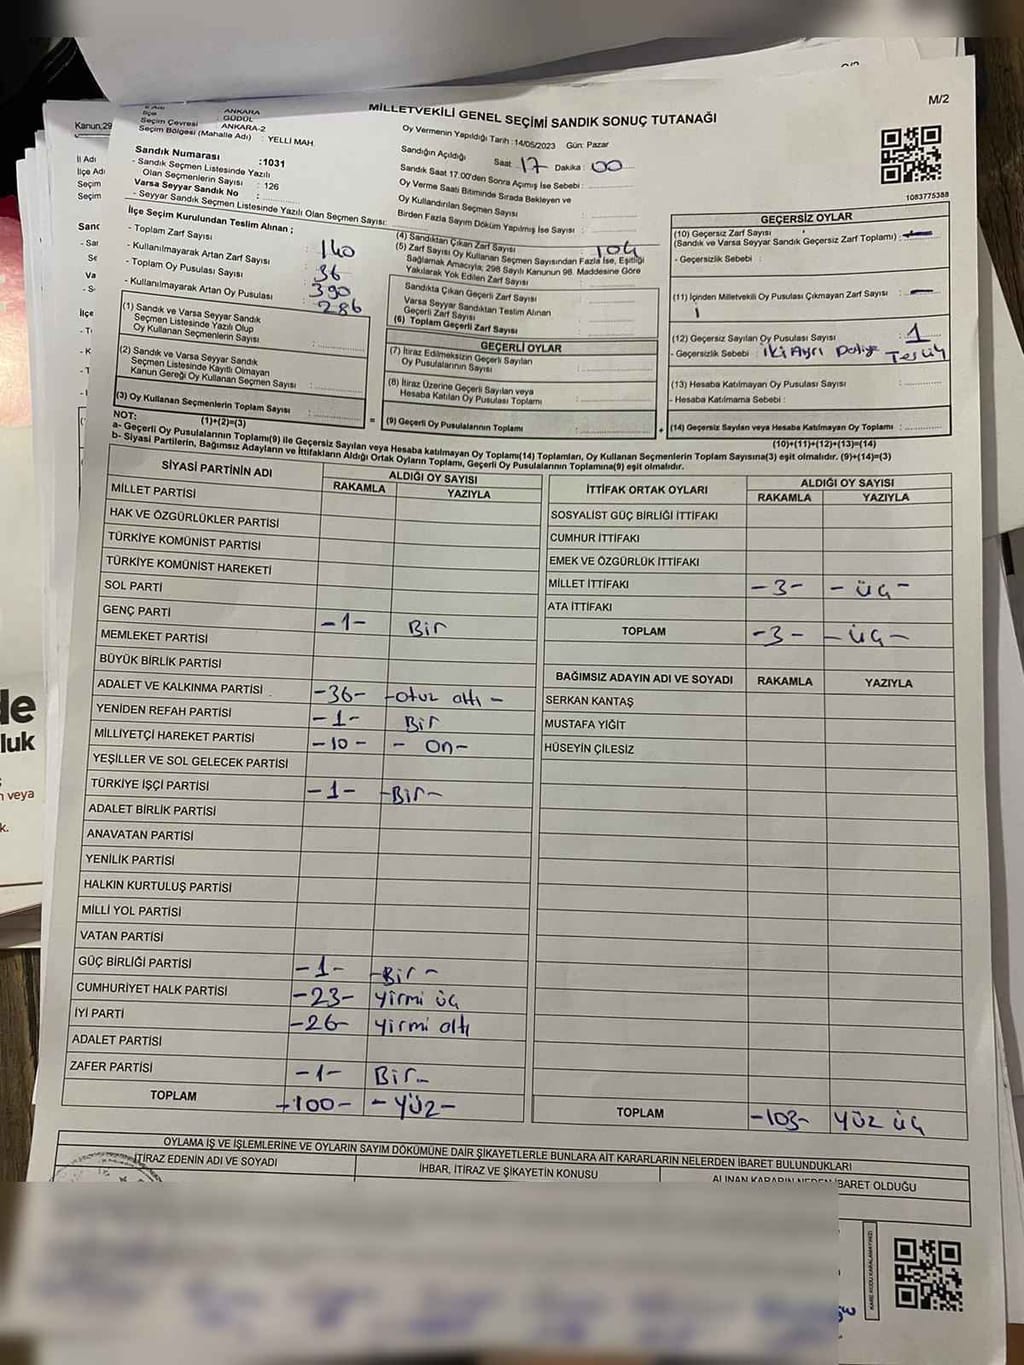 M/2
MİLLETVEKİLİ GENEL SEÇİMİ SANDIK SONUÇ TUTANAĞI
İl Adı
ANKARA
İlçe
GÜDÜL
Seçim Çevresi : ANKARA-2
Seçim Bölgesi (Mahalle Adı) : YELLİ MAH
Sandık Numarası :1031
- Sandık Seçmen Listesinde Yazılı
Olan Seçmenlerin Sayısı : 126
Varsa Seyyar Sandık No :
- Seyyar Sandık Seçmen Listesinde Yazılı Olan Seçmen Sayısı:
Oy Vermenin Yapıldığı Tarih :14/05/2023 Gün: Pazar
Sandığın Açıldığı Saat: 17 Dakika : 00
Sandık Saat 17.00'den Sonra Açılmış İse Sebebi :
Oy Verme Saati Bitiminde Sırada Bekleyen ve
Oy Kullandırılan Seçmen Sayısı :
Birden Fazla Sayım Döküm Yapılmış İse Sayısı :
1083775388
İlçe Seçim Kurulundan Teslim Alınan ;
- Toplam Zarf Sayısı : 140
- Kullanılmayarak Artan Zarf Sayısı : 36
- Toplam Oy Pusulası Sayısı : 390
- Kullanılmayarak Artan Oy Pusulası : 286
(1) Sandık ve Varsa Seyyar Sandık
Seçmen Listesinde Yazılı Olup
Oy Kullanan Seçmenlerin Sayısı :
(2) Sandık ve Varsa Seyyar Sandık
Seçmen Listesinde Kayıtlı Olmayan
Kanun Gereği Oy Kullanan Seçmen Sayısı :
(3) Oy Kullanan Seçmenlerin Toplam Sayısı :
(1)+(2)=(3)
(4) Sandıktan Çıkan Zarf Sayısı : 104
(5) Zarf Sayısı Oy Kullanan Seçmen Sayısından Fazla İse, Eşitliği
Sağlamak Amacıyla; 298 Sayılı Kanunun 98. Maddesine Göre
Yakılarak Yok Edilen Zarf Sayısı :
Sandıkta Çıkan Geçerli Zarf Sayısı :
Varsa Seyyar Sandıktan Teslim Alınan
Geçerli Zarf Sayısı :
(6) Toplam Geçerli Zarf Sayısı :
GEÇERLİ OYLAR
(7) İtiraz Edilmeksizin Geçerli Sayılan
Oy Pusulalarının Sayısı :
(8) İtiraz Üzerine Geçerli Sayılan veya
Hesaba Katılan Oy Pusulası Toplamı :
= (9) Geçerli Oy Pusulalarının Toplamı : +
GEÇERSİZ OYLAR
(10) Geçersiz Zarf Sayısı : —
(Sandık ve Varsa Seyyar Sandık Geçersiz Zarf Toplamı)
- Geçersizlik Sebebi :
(11) İçinden Milletvekili Oy Pusulası Çıkmayan Zarf Sayısı : —
(12) Geçersiz Sayılan Oy Pusulası Sayısı : 1
- Geçersizlik Sebebi : iki Ayrı
(13) Hesaba Katılmayan Oy Pusulası Sayısı :
- Hesaba Katılmama Sebebi :
(14) Geçersiz Sayılan veya Hesaba Katılmayan Oy Toplamı :
(10)+(11)+(12)+(13)=(14)
NOT:
a- Geçerli Oy Pusulalarının Toplamı(9) ile Geçersiz Sayılan veya Hesaba katılmayan Oy Toplamı(14) Toplamları, Oy Kullanan Seçmenlerin Toplam Sayısına(3) eşit olmalıdır. (9)+(14)=(3)
b- Siyasi Partilerin, Bağımsız Adayların ve İttifakların Aldığı Ortak Oyların Toplamı, Geçerli Oy Pusulalarının Toplamına(9) eşit olmalıdır.
SİYASİ PARTİNİN ADI ALDIĞI OY SAYISI
RAKAMLA YAZIYLA
MİLLET PARTİSİ
HAK VE ÖZGÜRLÜKLER PARTİSİ
TÜRKİYE KOMÜNİST PARTİSİ
TÜRKİYE KOMÜNİST HAREKETİ
SOL PARTİ
GENÇ PARTİ -1- Bir
MEMLEKET PARTİSİ
BÜYÜK BİRLİK PARTİSİ
ADALET VE KALKINMA PARTİSİ -36- -otuz altı -
YENİDEN REFAH PARTİSİ -1- Bir
MİLLİYETÇİ HAREKET PARTİSİ -10- - On-
YEŞİLLER VE SOL GELECEK PARTİSİ
TÜRKİYE İŞÇİ PARTİSİ -1- -Bir-
ADALET BİRLİK PARTİSİ
ANAVATAN PARTİSİ
YENİLİK PARTİSİ
HALKIN KURTULUŞ PARTİSİ
MİLLİ YOL PARTİSİ
VATAN PARTİSİ
GÜÇ BİRLİĞİ PARTİSİ -1- -Bir-
CUMHURİYET HALK PARTİSİ -23- yirmi üç
İYİ PARTİ -26- yirmi altı
ADALET PARTİSİ
ZAFER PARTİSİ -1- Bir-
TOPLAM -100- - YÜZ -
İTTİFAK ORTAK OYLARI ALDIĞI OY SAYISI
RAKAMLA YAZIYLA
SOSYALİST GÜÇ BİRLİĞİ İTTİFAKI
CUMHUR İTTİFAKI
EMEK VE ÖZGÜRLÜK İTTİFAKI
MİLLET İTTİFAKI -3- - üç -
ATA İTTİFAKI
TOPLAM -3- - üç -
BAĞIMSIZ ADAYIN ADI VE SOYADI RAKAMLA YAZIYLA
SERKAN KANTAŞ
MUSTAFA YİĞİT
HÜSEYİN ÇİLESİZ
TOPLAM -103- YÜZ üç
OYLAMA İŞ VE İŞLEMLERİNE VE OYLARIN SAYIM DÖKÜMÜNE DAİR ŞİKAYETLERLE BUNLARA AİT KARARLARIN NELERDEN İBARET BULUNDUKLARI
İTİRAZ EDENİN ADI VE SOYADI
İHBAR, İTİRAZ VE ŞİKAYETİN KONUSU
ALINAN KARARIN NEDEN İBARET OLDUĞU
KARE KODU KARALAMAYINIZ!
Kanun,29
İl Adı
İlçe Adı
Seçim
Seçim
de
luk
veya
k.